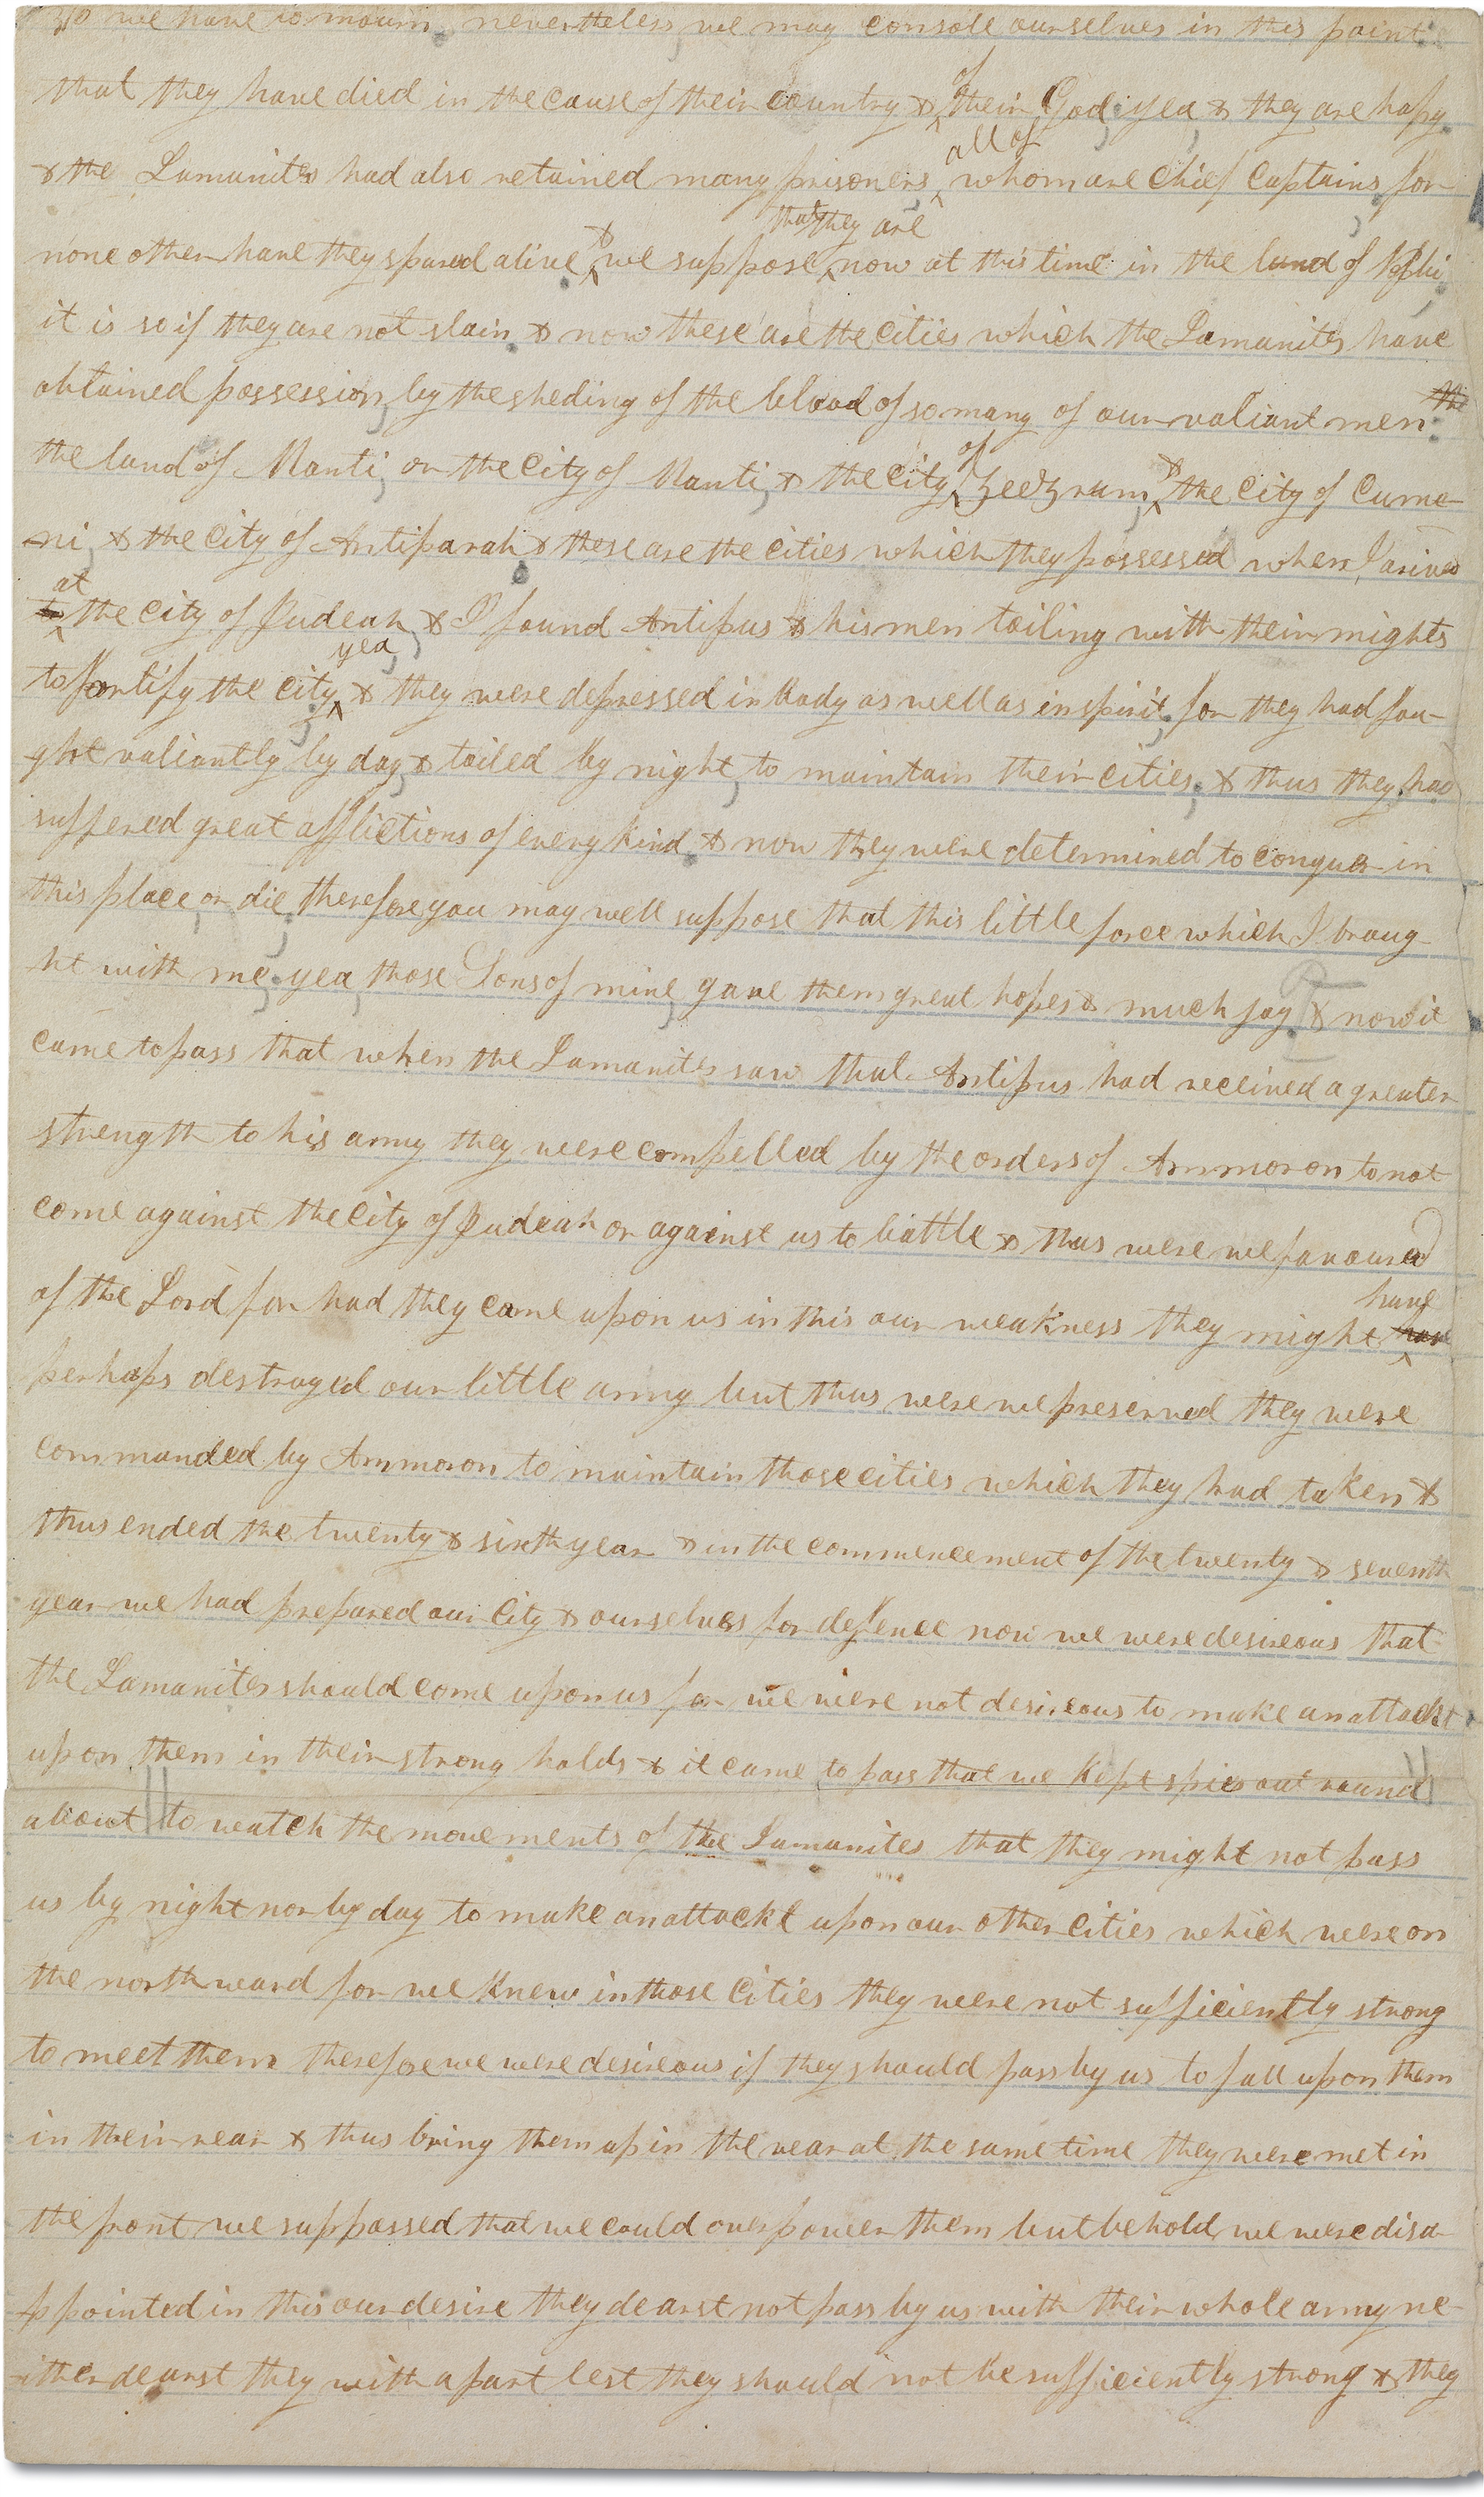 so we have to mourn nevertheless we may console ourselves in this point
that they have died in the cause of their country & of their God yea & they are happy
& the Lamanites had also retained many prisoners all of whom are chief captains for
none other have they spared alive & we suppose that they are now at this time in the land of Nephi
it is so if they are not slain & now these are the cities which the Lamanites have
obtained possession, by the sheding of the blood of so many of our valiant men the
the land of Manti, or the city of Manti, & the city of Zeezrum, & the city of Cume-
-ni, & the city of Antiparah & these are the cities which they possessed when I arived
to at the city of Judeah, & I found Antipus & his men toiling with their mights
to fortify the city yea, & they were depressed in body as well as in spirit, for they had fou-
ght valiantly by day, & toiled by night, to maintain their cities, & thus they had
suffered great afflictions of every kind & now they were determined to conquer in
this place, or die, therefore you may well suppose that this little force which I broug-
ht with me, yea, those Sons of mine, gave them great hopes & much joy & now it
came to pass that when the Lamanites saw that Antipus had received a greater
strength to his army they were compelled by the orders of Ammoron to not
come against the city of Judeah or against us to battle & thus were we favoured
of the Lord for had they came upon us in this our weakness they might have
perhaps destroyed our little army but thus were we preserved they were
commanded by Ammoron to maintain those cities which they had taken &
thus ended the twenty & sixth year & in the commencement of the twenty & seventh
year we had prepared our city & ourselves for defence now we were desireous that
the Lamanites should come upon us for we were not desireous to make an attackt
upon them in their strong holds & it came to pass that we kept spies out round
about to watch the movements of the Lamanites that they might not pass
us by night nor by day to make an attackt upon our other cities which were on
the north ward for we knew in those cities they were not sufficiently strong
to meet them therefore we were desireous if they should pass by us to fall upon them
in their rear & thus bring them up in the rear at the same time they were met in
the front we suppossed that we could over power them but behold we were disa-
ppointed in this our desire they dearst not pass by us with their whole army ne-
-ither dearst they with a part lest they should not be sufficiently strong & they